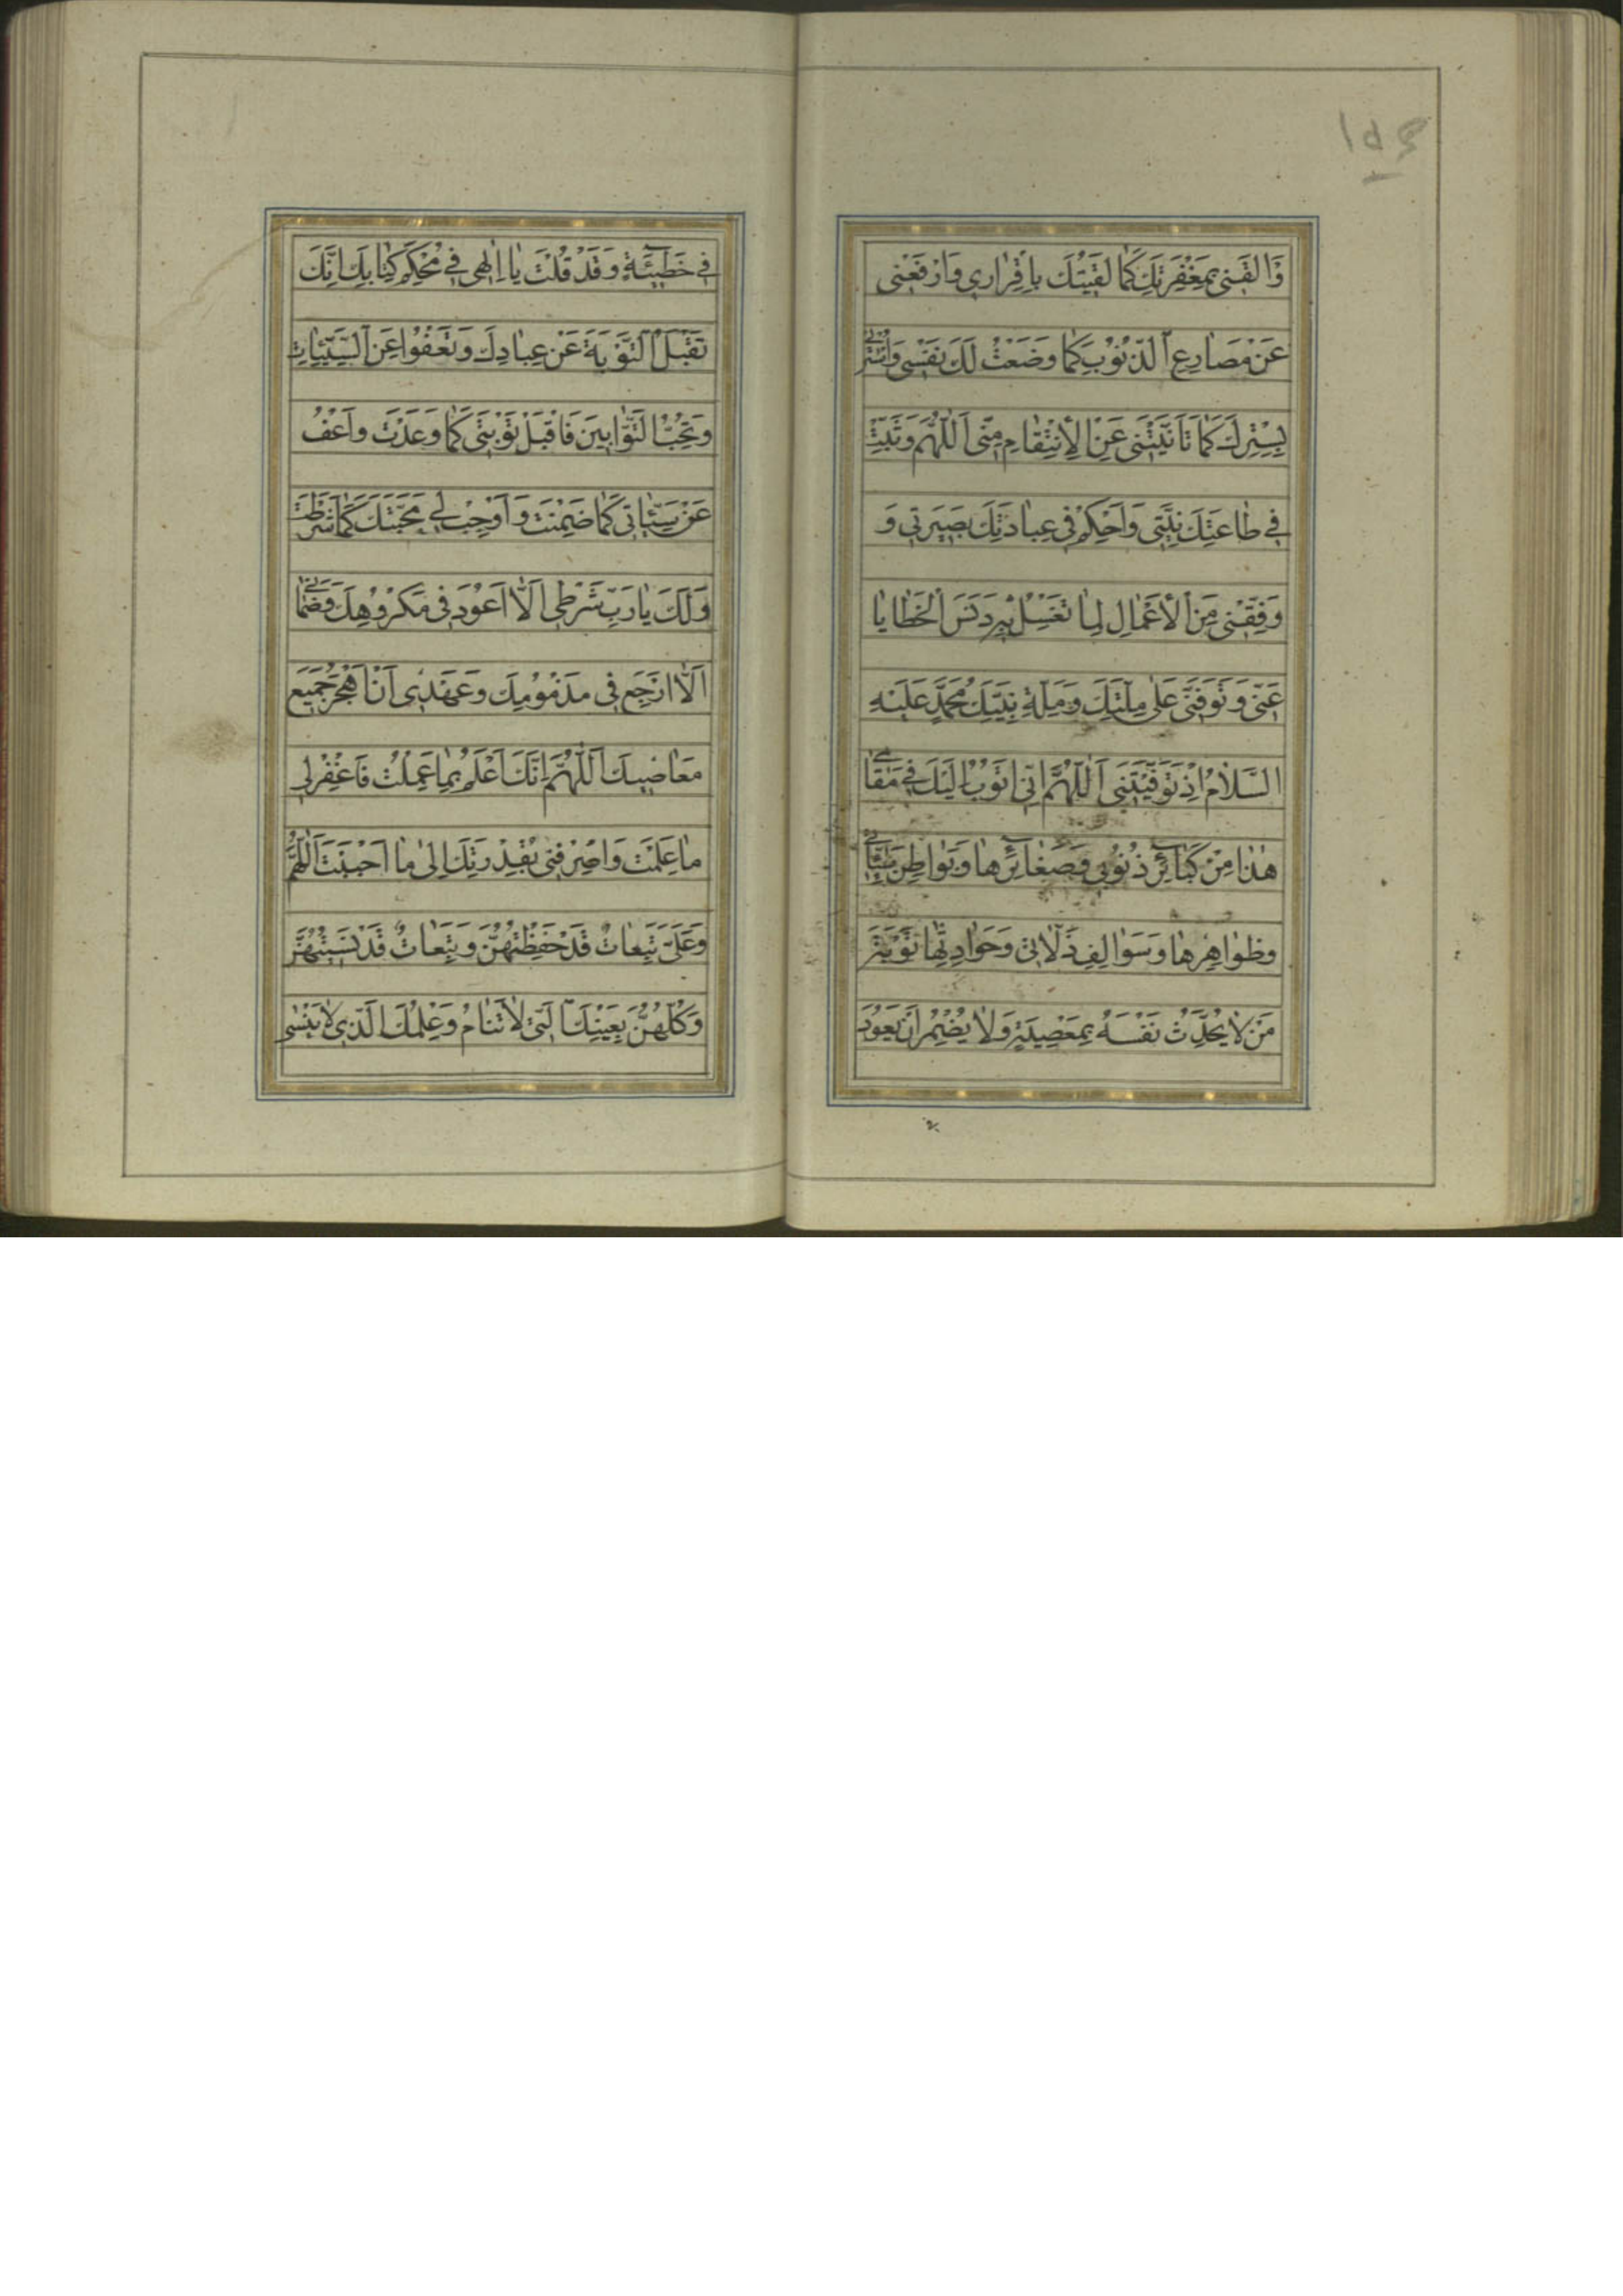 ۱۵۴
وَالْقَنِي بِمَغْفِرَتِكَ كَمَا لَقَيْتُكَ بِاِقْرٰارِي وَارْفَعْنِي
عَنْ مَصٰارِعِ الذُّنُوْبِ كَمٰا وَضَعْتُ لَكَ نَفْسِي وَاسْتُرْنِي
بِسِتْرِكَ كَمٰا تَاَنَّيْتَنِي عَنِ الْاِنْتِقٰامِ مِنِّي اَللّٰهُمَّ وَثَبِّتْ
فِي طٰاعَتِكَ نِيَّتِي وَاَحْكِمْ فِي عِبٰادَتِكَ بَصِيرَتِي وَ
وَفِّقْنِي مِنَ الْاَعْمٰالِ لِمٰا تَغْسِلُ بِهِ دَنَسَ الْخَطٰايٰا
عَنِّي وَتَوَفَّنِي عَلٰى مِلَّتِكَ وَمِلَّةِ نَبِيِّكَ مُحَمَّدٍ عَلَيْهِ
السَّلٰامُ اِذْ تَوَفَّيْتَنِي اَللّٰهُمَّ اِنِّي اَتُوْبُ اِلَيْكَ فِي مَقٰامِي
هٰذٰا مِنْ كَبٰآئِرِ ذُنُوْبِي وَصَغٰآئِرِهٰا وَبَوٰاطِنِ سَيِّئٰاتِي
وَظَوٰاهِرِهٰا وَسَوٰالِفِ زَلّٰاتِي وَحَوٰادِثِهٰا تَوْبَةَ
مَنْ لٰا يُحَدِّثُ نَفْسَهُ بِمَعْصِيَةٍ وَلٰا يُضْمِرُ اَنْ يَعُوْدَ
فِي خَطِيْٓئَةٍ وَقَدْ قُلْتَ يٰا اِلٰهِي فِي مُحْكَمِ كِتٰابِكَ اِنَّكَ
تَقْبَلُ التَّوْبَةَ عَنْ عِبٰادِكَ وَتَعْفُوا عَنِ السَّيِّئٰاتِ
وَتُحِبُّ التَّوّٰابِينَ فَاقْبَلْ تَوْبَتِي كَمٰا وَعَدْتَ وَاعْفُ
عَنْ سَيِّئٰاتِي كَمٰا ضَمِنْتَ وَاَوْجِبْ لِي مَحَبَّتَكَ كَمٰا شَرَطْتَ
وَلَكَ يٰا رَبِّ شَرْطِي اَلّٰا اَعُوْدَ فِي مَكْرُوْهِكَ وَضَمٰانِي
اَلّٰا اَرْجِعَ فِي مَذْمُوْمِكَ وَعَهْدِي اَنْ اَهْجُرَ جَمِيْعَ
مَعٰاصِيكَ اَللّٰهُمَّ اِنَّكَ اَعْلَمُ بِمٰا عَمِلْتُ فَاغْفِرْ لِي
مٰا عَلِمْتَ وَاصْرِفْنِي بِقُدْرَتِكَ اِلٰى مٰا اَحْبَبْتَ اَللّٰهُمَّ
وَعَلَيَّ تَبِعٰاتٌ قَدْ حَفِظْتُهُنَّ وَتَبِعٰاتٌ قَدْ نَسِيْتُهُنَّ
وَكُلُّهُنَّ بِعَيْنِكَ الَّتِي لٰا تَنٰامُ وَعِلْمِكَ الَّذِي لٰا يَنْسٰى